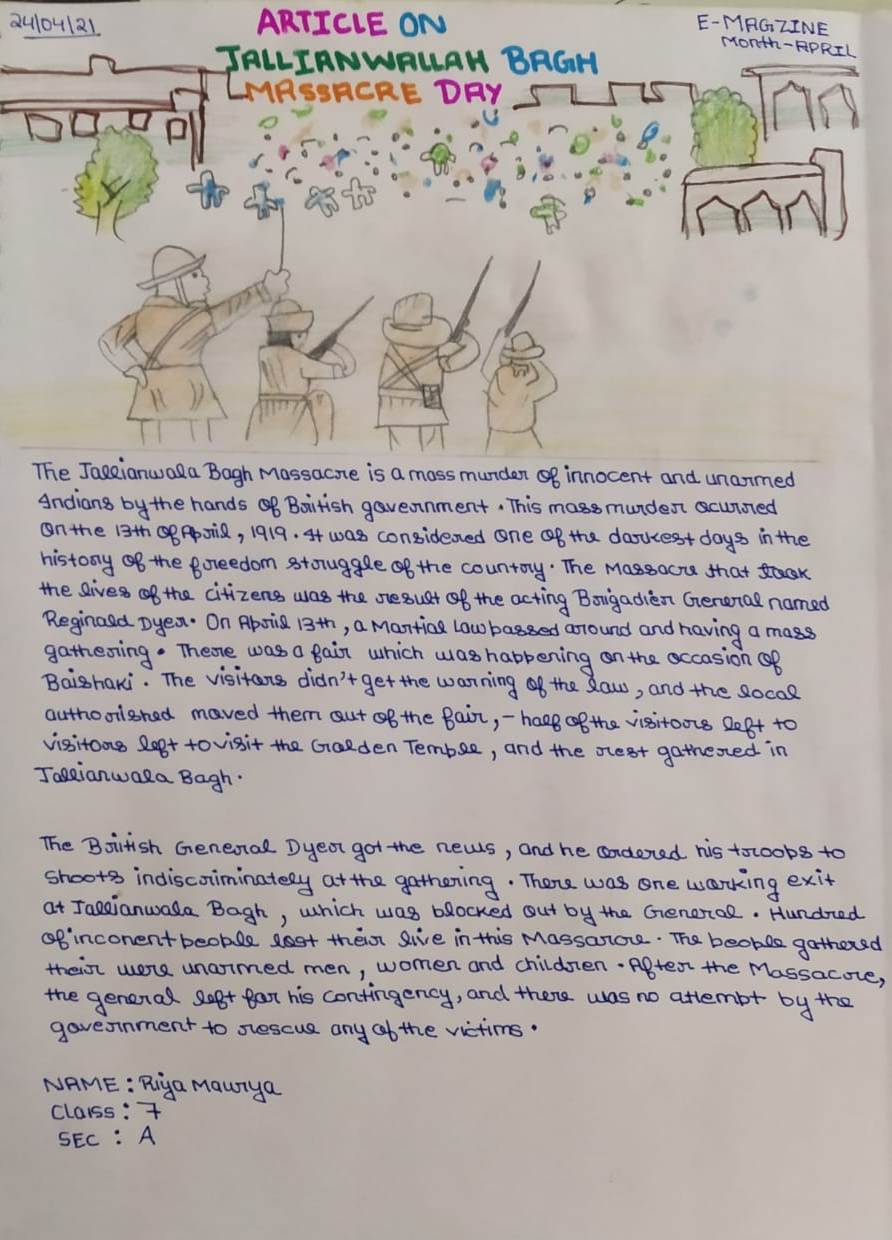 24/04/21
ARTICLE ON
JALLIANWALLAH BAGH
MASSACRE DAY
E-MAGZINE
Month-APRIL
The Jallianwala Bagh Massacre is a mass murder of innocent and unarmed
Indians by the hands of British government. This mass murder ocurred
on the 13th of April, 1919. It was considered one of the darkest days in the
history of the freedom struggle of the country. The Massacre that took
the lives of the citizens was the result of the acting Brigadier General named
Reginald Dyer. On April 13th, a Martial Law passed around and having a mass
gathering. There was a fair which was happening on the occasion of
Baishaki. The visitors didn't get the warning of the law, and the local
authorished moved them out of the fair,- half of the visitors left to
visitors left to visit the Golden Temple, and the rest gathered in
Jallianwala Bagh.
The British General Dyer got the news, and he ordered his troops to
shoots indiscriminately at the gathering. There was one working exit
at Jallianwala Bagh, which was blocked out by the General. Hundred
of inconent people lost their live in this Massarcre. The people gathered
their were unarmed men, women and children. After the Massacre,
the general left for his contingency, and there was no attempt by the
government to rescue any of the victims.
NAME: Riya Maurya
Class: 7
SEC : A